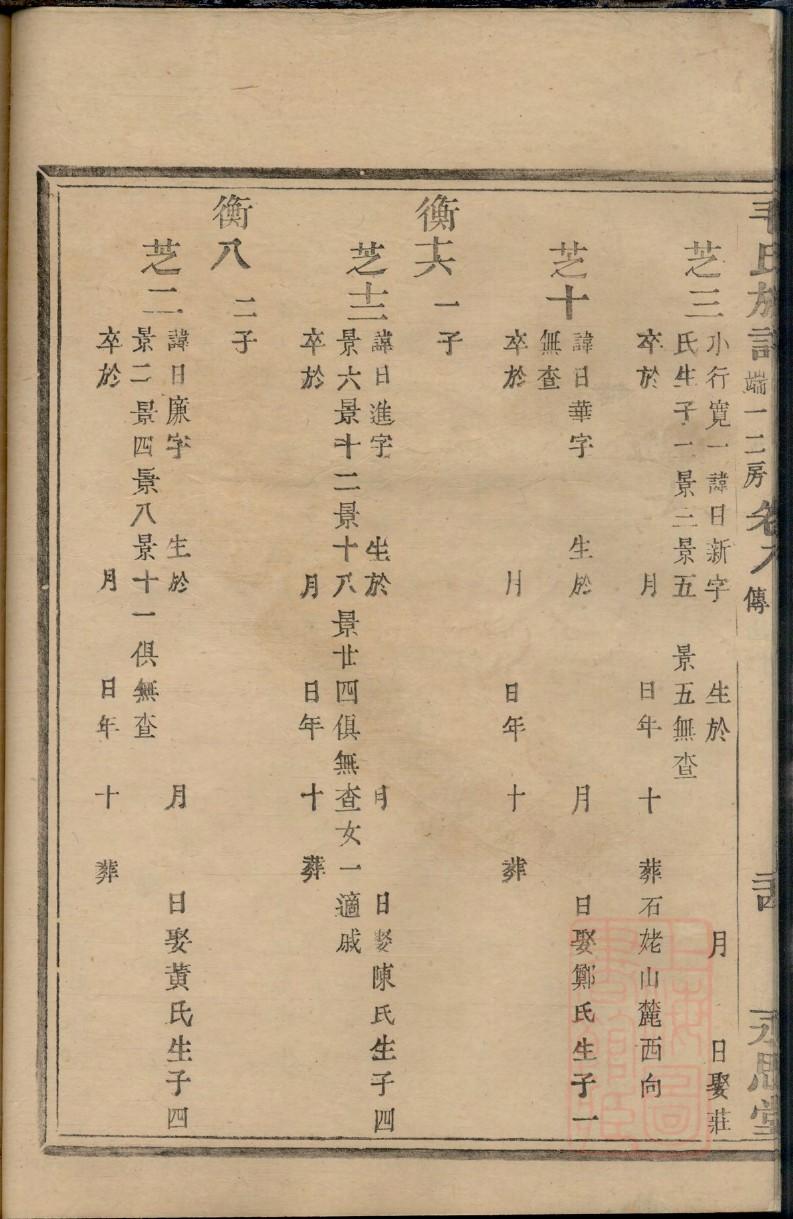 毛氏族譜 端一二房 卷八 傳 永思堂
芝三
小行寬一諱日新字 生於 月 日娶莊
氏生子二景三景五 景五無查
卒於 月 日年 十 葬石姥山麓西向
芝十
諱日華字 生於 月 日娶鄭氏生子一
無查
卒於 月 日年 十 葬
衡六 一子
芝十三
諱日進字 生於 月 日娶陳氏生子四
景六景十二景十八景廿四俱無查女一適戚
卒於 月 日年 十 葬
衡八 二子
芝二
諱日廉字 生於 月 日娶黃氏生子四
景二景四景八景十一俱無查
卒於 月 日年 十 葬